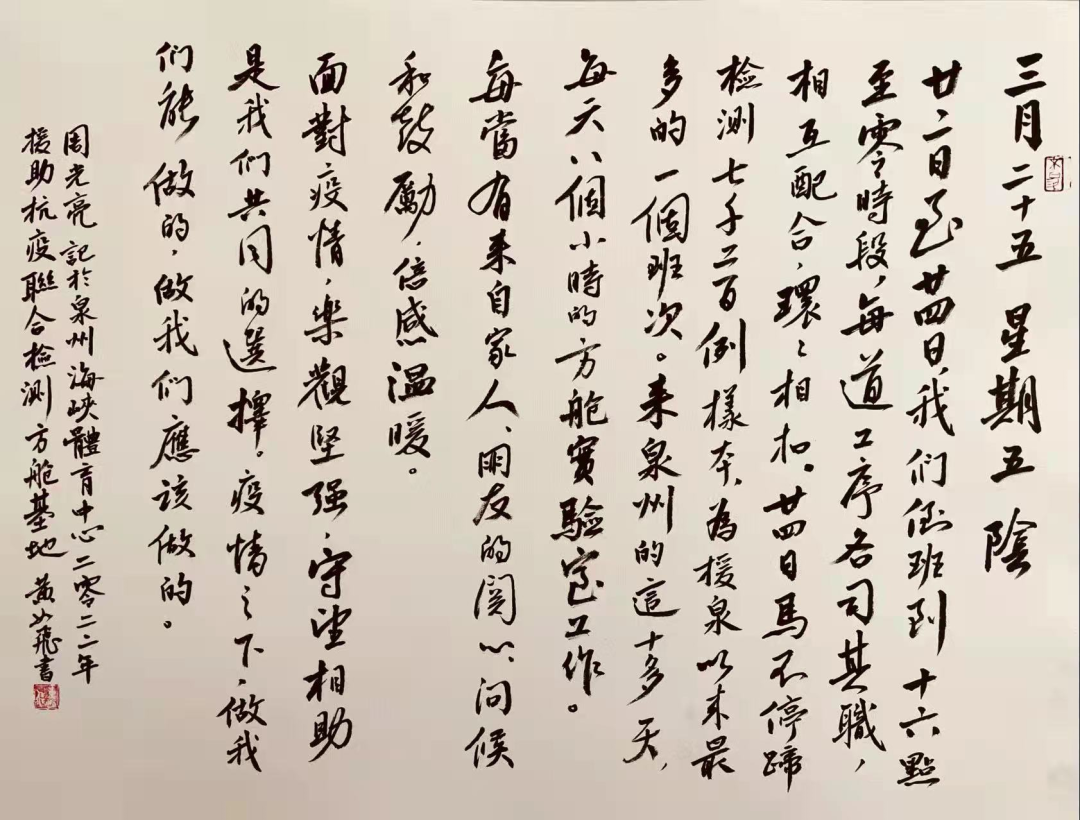 三月二十五 星期五 陰
廿二日至廿四日，我們倒班到十六點
至零時段，每道工序各司其職，
相互配合，環々相扣。廿四日馬不停蹄
檢測七千二百例樣本，為援泉以来最
多的一個班次。来泉州的這十多天，
每天八個小時的方舱實驗室工作。
每當有来自家人、朋友的関心、问候
和鼓勵，倍感温暖。
面對疫情，樂觀堅强，守望相助
是我們共同的選擇。疫情之下，做我
們能做的，做我們應該做的。
周光亮 記於泉州海峽體育中心二零二二年
援助抗疫聯合檢測方舱基地 黄少飛書